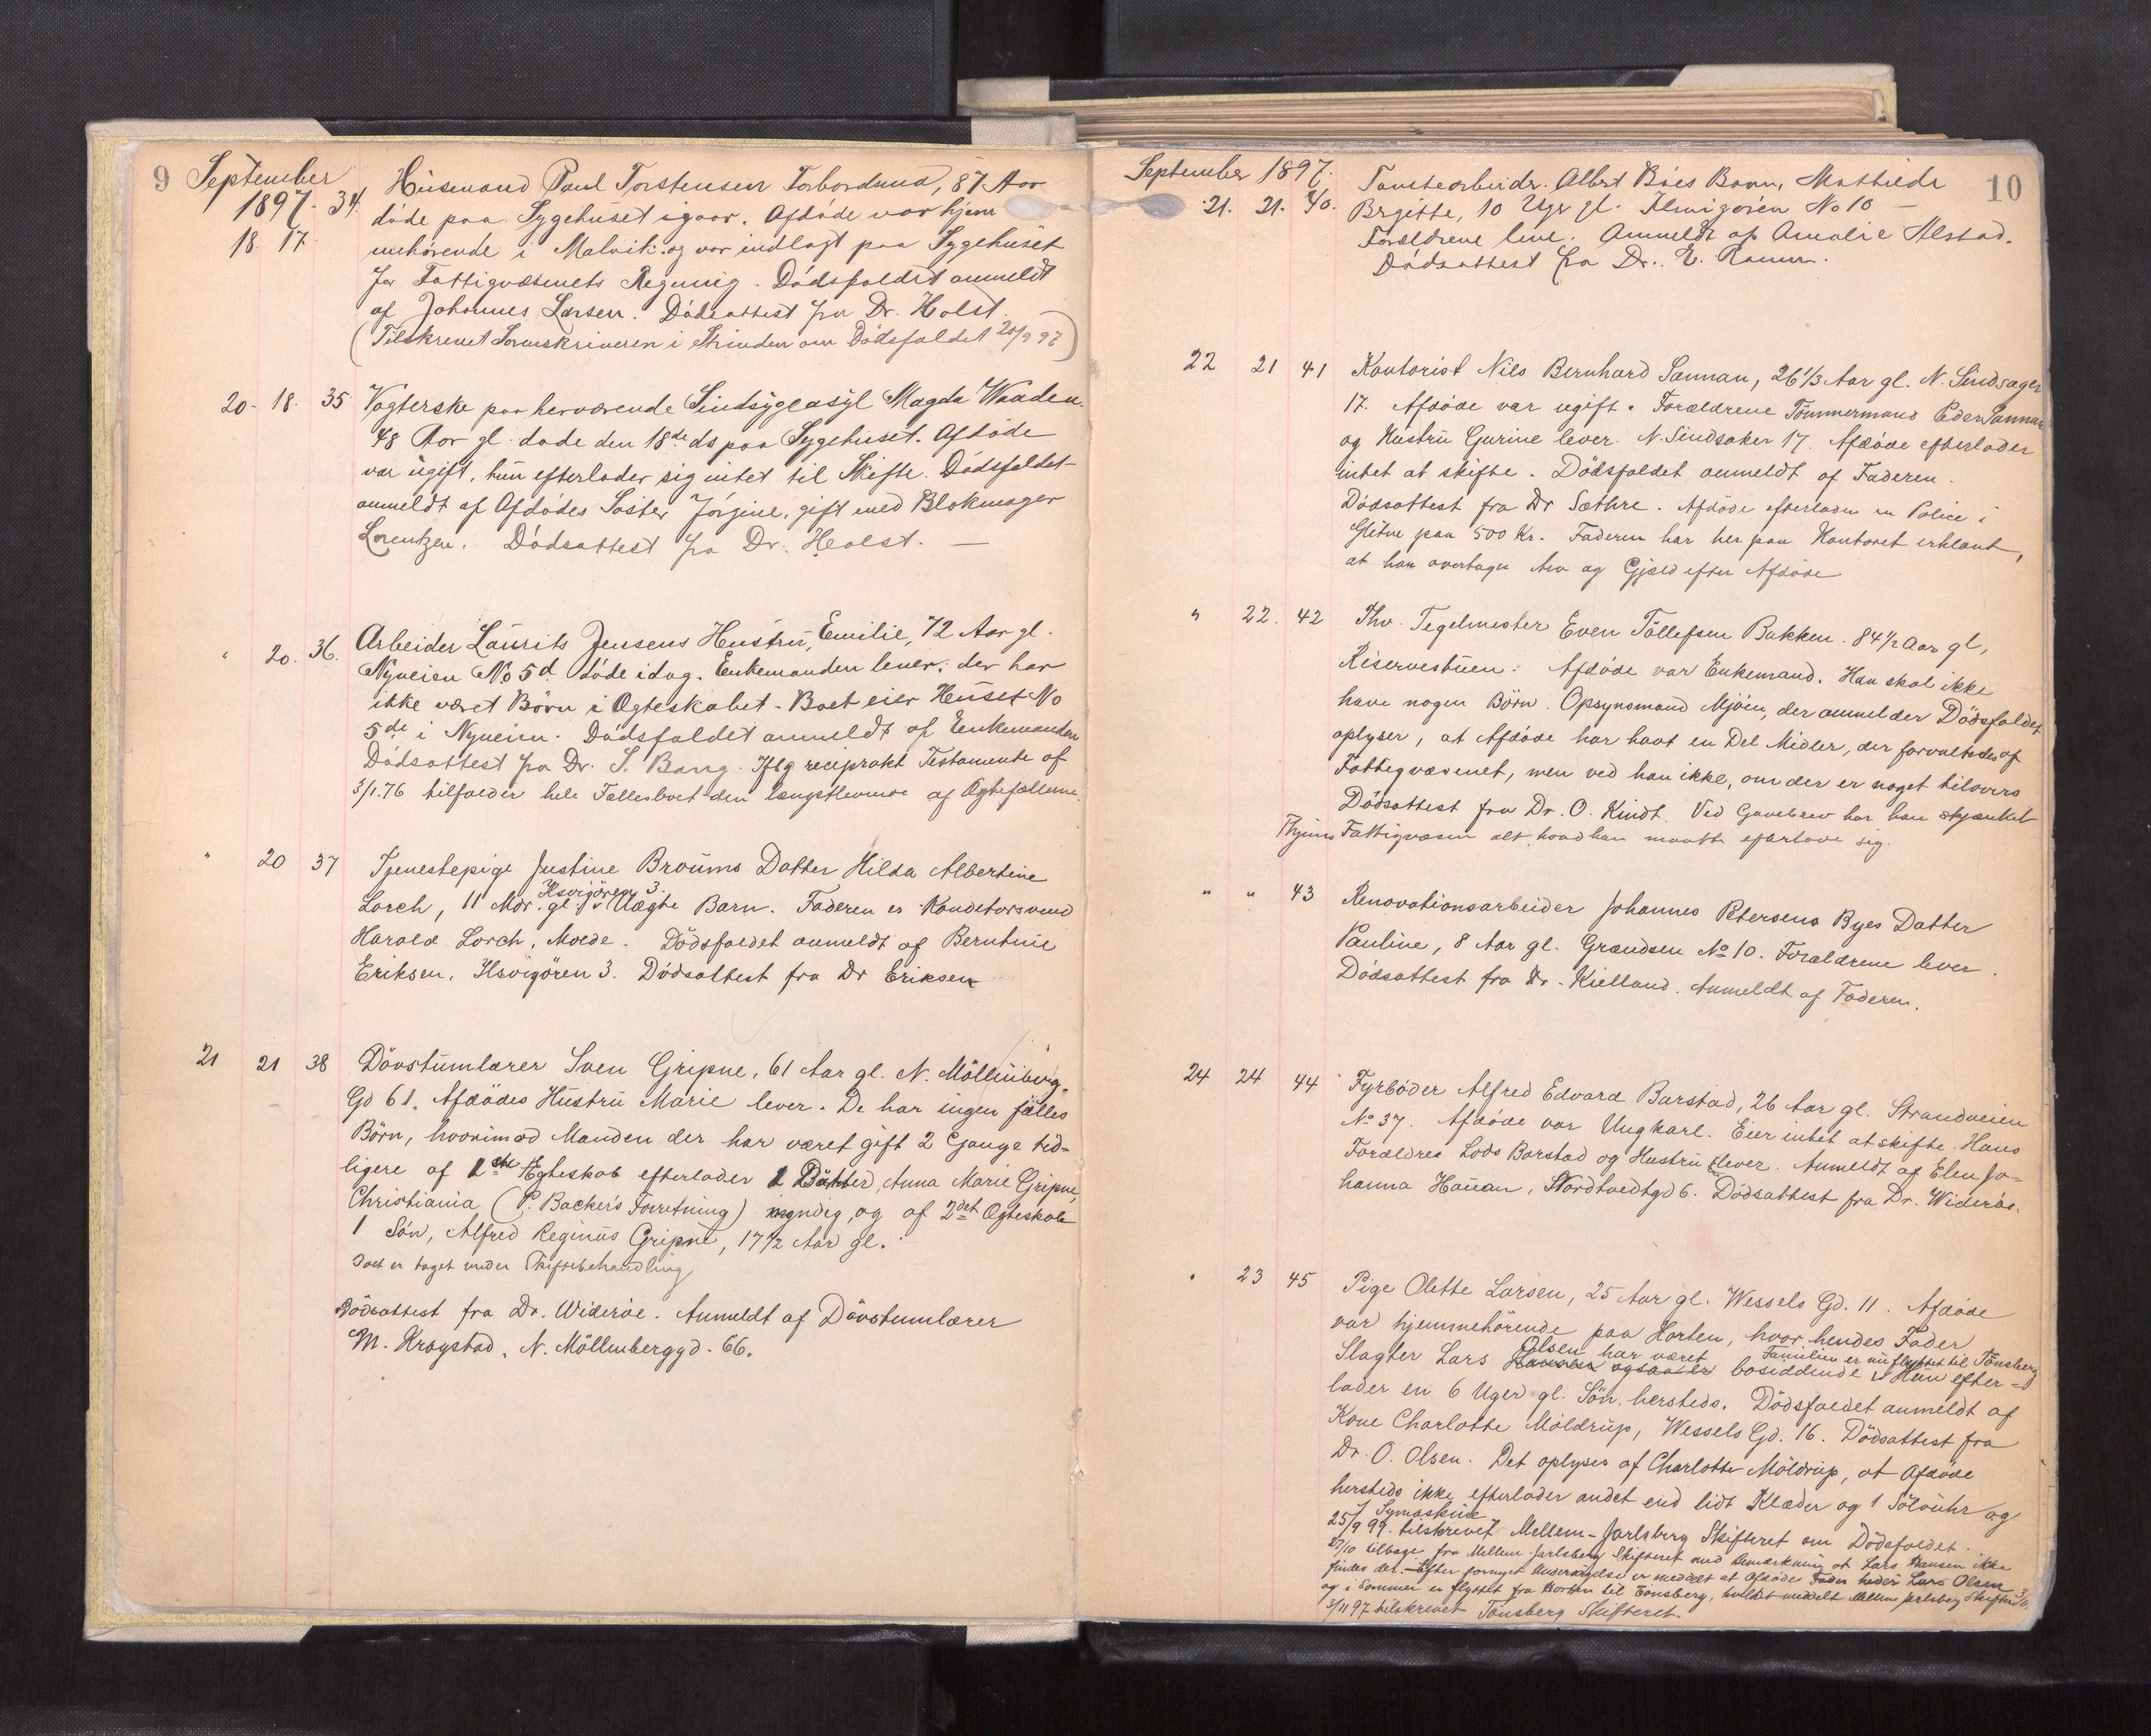 9 September
1897. 34. Husmand Paul Torstensen Torbordsma, 87 Aar
døde paa Sygehuset igaar. Afdøde var hjem
18. 17. mehørende i Malvik og var indlagt paa Sygehuset
for Fattigvæsenets Regning. Dødsfaldet anmeldt
af Johannes Larsen. Dødsattest fra Dr. Holst.
(Tilskrevet Sorenskriveren i Strinden om Dødsfaldet 20/9 97)
20. 18. 35 Vogterske paa herværende Sindsygeasyl Magda Waaden.
48 Aar gl. døde den 18de ds paa Sygehuset. Afdøde
var ugift, hun efterlader sig intet til Skifte. Dødsfaldet
anmeldt af Afdødes Søster Jørgine, gift med Blokmager
Lorentzen. Dødsattest fra Dr. Holst. —
" 20. 36. Arbeider Laurits Jensens Hustru, Emilie, 72 Aar gl.
Nyveien No 5d døde idag. Enkemanden lever; der har
ikke været Børn i Ægteskabet. Boet eier Huset No
5de i Nyveien. Dødsfaldet anmeldt af Enkemanden
Dødsattest fra Dr. S. Bang. Iflg reciprokt Testamente af
3/1.76 tilfalder hele Fællesboet den længstlevende af Ægtefællerne.
" 20 37 Tjenestepige Justine Broums Datter Hilda Albertine
Ilsvigøren 3.
Lorch, 11 Mdr. gl. Uægte Barn. Faderen er Konditorsvend
Harald Lorch, Molde. Dødsfaldet anmeldt af Berntine
Eriksen, Ilsvigøren 3. Dødsattest fra Dr Eriksen
21 21 38 Døvstumlærer Sven Gripne, 61 Aar gl. N. Møllenberg-
Gd 61. Afdødes Hustru Marie lever. De har ingen fælles
Børn, hvorimod Manden der har været gift 2 Gange tid-
ligere af 1ste Ægteskab efterlader 1 Datter, Anna Marie Gripne,
Christiania (P. Backers Forretning) myndig, og af 2det Ægteskab
1 Søn, Alfred Reginus Gripne, 17 1/2 Aar gl.
Boet er taget under Skiftebehandling
Dødsattest fra Dr. Widerøe. Anmeldt af Døvstumlærer
M. Krogstad, N. Møllenberggd. 66.
September 1897. 10
21. 21. 40. Tomtearbeidr. Albert Böes Barn, Mathilde
Brgitte, 10 Uger gl. Ilsvigøren No 10 —
Forældrene leve. Anmeldt af Amalie Alstad.
Dødsattest fra Dr. E.
22 21 41 Kontorist Nils Bernhard Sannan, 26 1/3 Aar gl. N. Sindsager
17. Afdøde var ugift. Forældrene Tømmermand Peder Sannan
og Hustru Gurine lever. N. Sindsaker 17. Afdøde efterlader
intet at skifte. Dødsfaldet anmeldt af Faderen.
Dødsattest fra Dr Sæthre. Afdøde efterlader en Police i
Glitne paa 500 Kr. Faderen har her paa Kontoret erklært,
at han overtager Arv og Gjæld efter Afdøde
" 22. 42 Fhv. Teglmester Even Tollefsen Bakken. 84 1/2 Aar gl,
Reservestuen. Afdøde var Enkemand. Han skal ikke
have nogen Børn. Opsynsmand Mjöen, der anmelder Dødsfaldet
oplyser, at Afdøde har havt en Del Midler, der forvaltedes af
Fattigvæsenet, men ved han ikke, om der er noget tilovers
Dødsattest fra Dr. O. Kindt. Ved Gavebrev har han skjænket
Thjems Fattigvæsen alt, hvad han maatte efterlade sig.
" " 43 Renovationsarbeider Johannes Petersens Byes Datter
Pauline, 8 Aar gl. Grændsen No 10. Forældrene lever.
Dødsattest fra Dr. Kielland. Anmeldt af Faderen.
24 24 44 Fyrbøder Alfred Edvard Barstad, 26 Aar gl. Strandveien
No 37. Afdøde var Ungkarl. Eier intet at skifte. Hans
Forældre Lods Barstad og Hustru lever. Anmeldt af Elen Jo-
hanna Hauan, Nordtvedtgd 6. Dødsattest fra Dr. Widerøe.
" 23 45 Pige Olette Larsen, 25 Aar gl. Wessels Gd. 11. Afdøde
var hjemmehørende paa Horten, hvor hendes Fader
Olsen har været Familien er nu flyttet til Tønsberg
Slagter Lars Hansen ogsaa er bosiddende. Hun efter-
lader en 6 Uger gl. Søn, hersteds. Dødsfaldet anmeldt af
Kone Charlotte Møldrup, Wessels Gd. 16. Dødsattest fra
Dr. O. Olsen. Det oplyses af Charlotte Møldrup, at Afdøde
hersteds ikke efterlader andet end lidt Klæder og 1 Sølvuhr og
1 Symaskine
25/9 97. tilskrevet Mellem-Jarlsberg Skifteret om Dødsfaldet.
27/10 tilbage fra Mellem Jarlsberg Skifteret med Bemærkning at Lars Hansen ikke
findes der. Efter fornyet Undersøgelse er meddelt at Afdødes Fader heder Lars Olsen
og i Sommer er flyttet fra Horten til Tønsberg, hvilket meddelt Mellem Jarlsberg Skifteret
3/11 97 tilskrevet Tønsberg Skifteret.